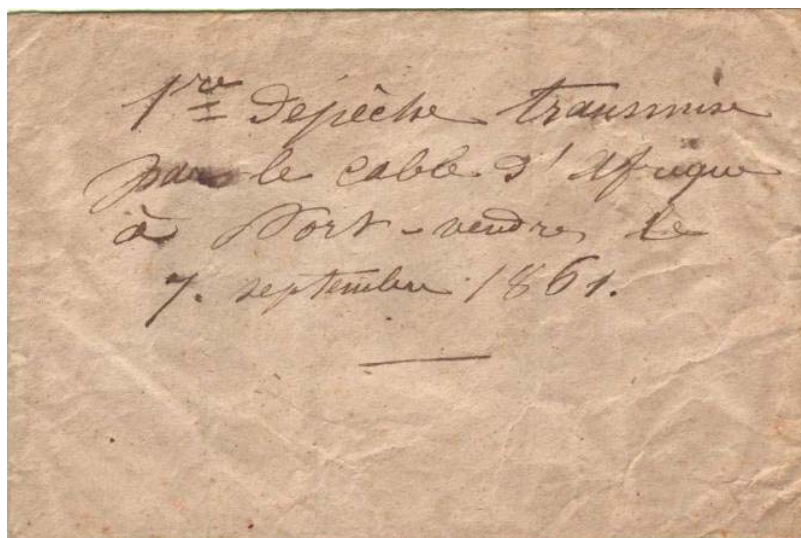 1re Depêche transmise
par le cable d'Afrique
à Port-vendres le
7. septembre 1861.